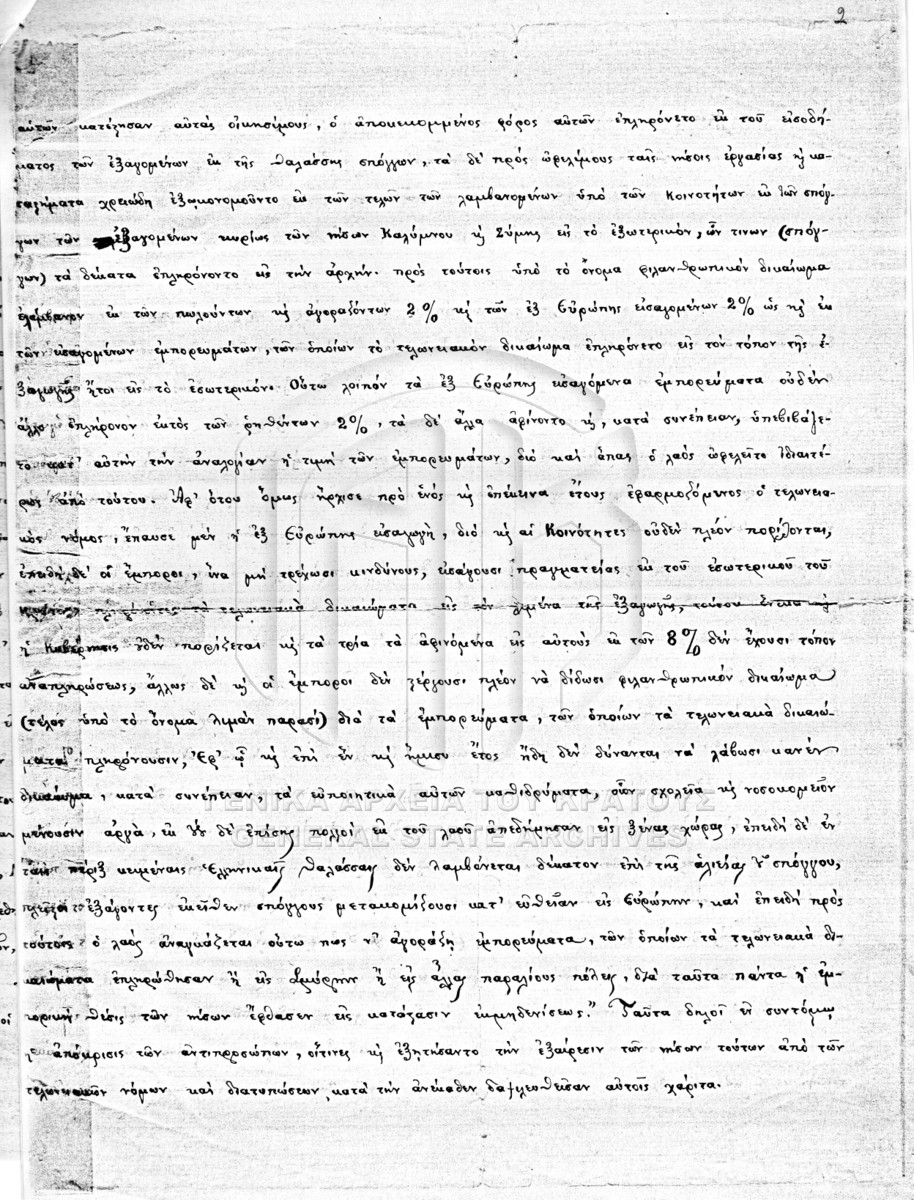 2
αὐτῶν κατέστησαν αὐτὰς οἰκησίμους, ὁ ἀποκεκομμένος φόρος αὐτῶν ἐπληρόνετο ἐκ τοῦ εἰσοδή-
ματος τῶν ἐξαγομένων ἐκ τῆς θαλάσσης σπόγγων, τὰ δὲ πρὸς ὠφελίμους ταῖς νήσοις ἐργασίας κỳ κα-
ταστήματα χρειώδη ἐξῳκονομοῦντο ἐκ τῶν τελῶν τῶν λαμβανομένων ὑπὸ τῶν Κοινοτήτων ἐκ τῶν σπόγ-
γων τῶν ἐξαγομένων κυρίως τῶν νήσων Καλύμνου κỳ Σύμης εἰς τὸ ἐξωτερικόν, ὧν τινων (σπόγ-
γων) τὰ δέκατα ἐπληρόνοντο εἰς τὴν ἀρχήν. πρὸς τούτοις ὑπὸ τὸ ὄνομα φιλανθρωπικὸν δικαίωμα
ἐλάμβανον ἐκ τῶν πωλούντων κỳ ἀγοραζόντων 2% κỳ τῶν ἐξ Εὐρώπης εἰσαγομένων 2% ὡς κỳ ἐκ
τῶν εἰσαγομένων ἐμπορευμάτων, τῶν ὁποίων τὸ τελωνειακὸν δικαίωμα ἐπληρόνετο εἰς τὸν τόπον τῆς ἐ-
ξαγωγῆς ἤτοι εἰς τὸ ἐσωτερικόν. Οὕτω λοιπὸν τὰ ἐξ Εὐρώπης εἰσαγόμενα ἐμπορεύματα οὐδὲν
ἄλλο ἐπλήρονον ἐκτὸς τῶν ῥηθέντων 2%, τὰ δὲ ἄλλα ἀφίνοντο κỳ, κατὰ συνέπειαν, ὑπεβιβάζε-
το κατ' αὐτὴν τὴν ἀναλογίαν ἡ τιμὴ τῶν ἐμπορευμάτων, διὸ καὶ ἅπας ὁ λαὸς ὠφελεῖτο ἰδιαιτέ-
ρως ἀπὸ τούτου. Ἀφ' ὅτου ὅμως ἤρχισε πρὸ ἑνὸς κỳ ἐπέκεινα ἔτους ἐφαρμοζόμενος ὁ τελωνεια-
κὸς νόμος, ἔπαυσε μὲν ἡ ἐξ Εὐρώπης εἰσαγωγὴ, διὸ κỳ αἱ Κοινότητες οὐδὲν πλέον πορίζονται,
ἐπειδὴ δὲ οἱ ἔμποροι, ἵνα μὴ τρέχωσι κινδύνους, εἰσάγουσι πραγματείας ἐκ τοῦ ἐσωτερικοῦ τοῦ
τὰ τελωνιακὰ δικαιώματα εἰς τὸν λιμένα τῆς ἐξαγωγῆς, τούτου ἕνεκα κỳ
ἡ Κυβέρνησις οὐδὲν πορίζεται κỳ τὰ τρία τὰ ἀφινόμενα εἰς αὐτοὺς ἐκ τῶν 8% δὲν ἔχουσι τόπον
ἀναπληρώσεως, ἄλλως δὲ κỳ οἱ ἔμποροι δὲν στέργουσι πλέον νὰ δίδωσι φιλανθρωπικὸν δικαίωμα
(τέλος ὑπὸ τὸ ὄνομα λιμὰν παρασί) διὰ τὰ ἐμπορεύματα, τῶν ὁποίων τὰ τελωνειακὰ δικαιώ-
ματα πληρόνουσιν, Ἐφ' ᾧ κỳ ἐπὶ ἓν κỳ ἥμισυ ἔτος ἤδη δὲν δύνανται νὰ λάβωσι κανὲν
δικαίωμα, κατὰ συνέπειαν, τὰ εὐποιητικὰ αὐτῶν καθιδρύματα, οἷον σχολεῖα κỳ νοσοκομεῖον
μένουσιν ἀργὰ, ἐκ δὲ ἐπίσης πολλοὶ ἐκ τοῦ λαοῦ ἀπεδήμησαν εἰς ξένας χώρας, ἐπειδὴ δὲ ἐν
ταῖς πέριξ κειμέναις Ἑλληνικαῖς θαλάσσαις δὲν λαμβάνεται δέκατον ἐπὶ τῆς ἁλιείας τοῦ σπόγγου,
ἐξάγοντες ἐκεῖθεν σπόγγους μετακομίζουσι κατ' εὐθεῖαν εἰς Εὐρώπην, καὶ ἐπειδὴ πρὸς
τούτοις ὁ λαὸς ἀναγκάζεται οὕτω πως ν' ἀγοράζῃ ἐμπορεύματα, τῶν ὁποίων τὰ τελωνειακὰ δι-
καιώματα ἐπληρώθησαν ἢ εἰς Σμύρνην ἢ εἰς ἄλλας παραλίους πόλεις, διὰ ταῦτα πάντα ἡ ἐμ-
πορικὴ θέσις τῶν νήσων ἔφθασεν εἰς κατάστασιν ἐκμηδενίσεως." Ταῦτα δηλοῖ ἐν συντόμῳ
ἡ ἀπόκρισις τῶν ἀντιπροσώπων, οἵτινες κỳ ἐξῃτήσαντο τὴν ἐξαίρεσιν τῶν νήσων τούτων ἀπὸ τῶν
τελωνειακῶν νόμων καὶ διατυπώσεων κατὰ τὴν ἀνέκαθεν δαψιλευθεῖσαν αὐτοῖς χάριτα.
ΓΕΝΙΚΑ ΑΡΧΕΙΑ ΤΟΥ ΚΡΑΤΟΥΣ
GENERAL STATE ARCHIVES